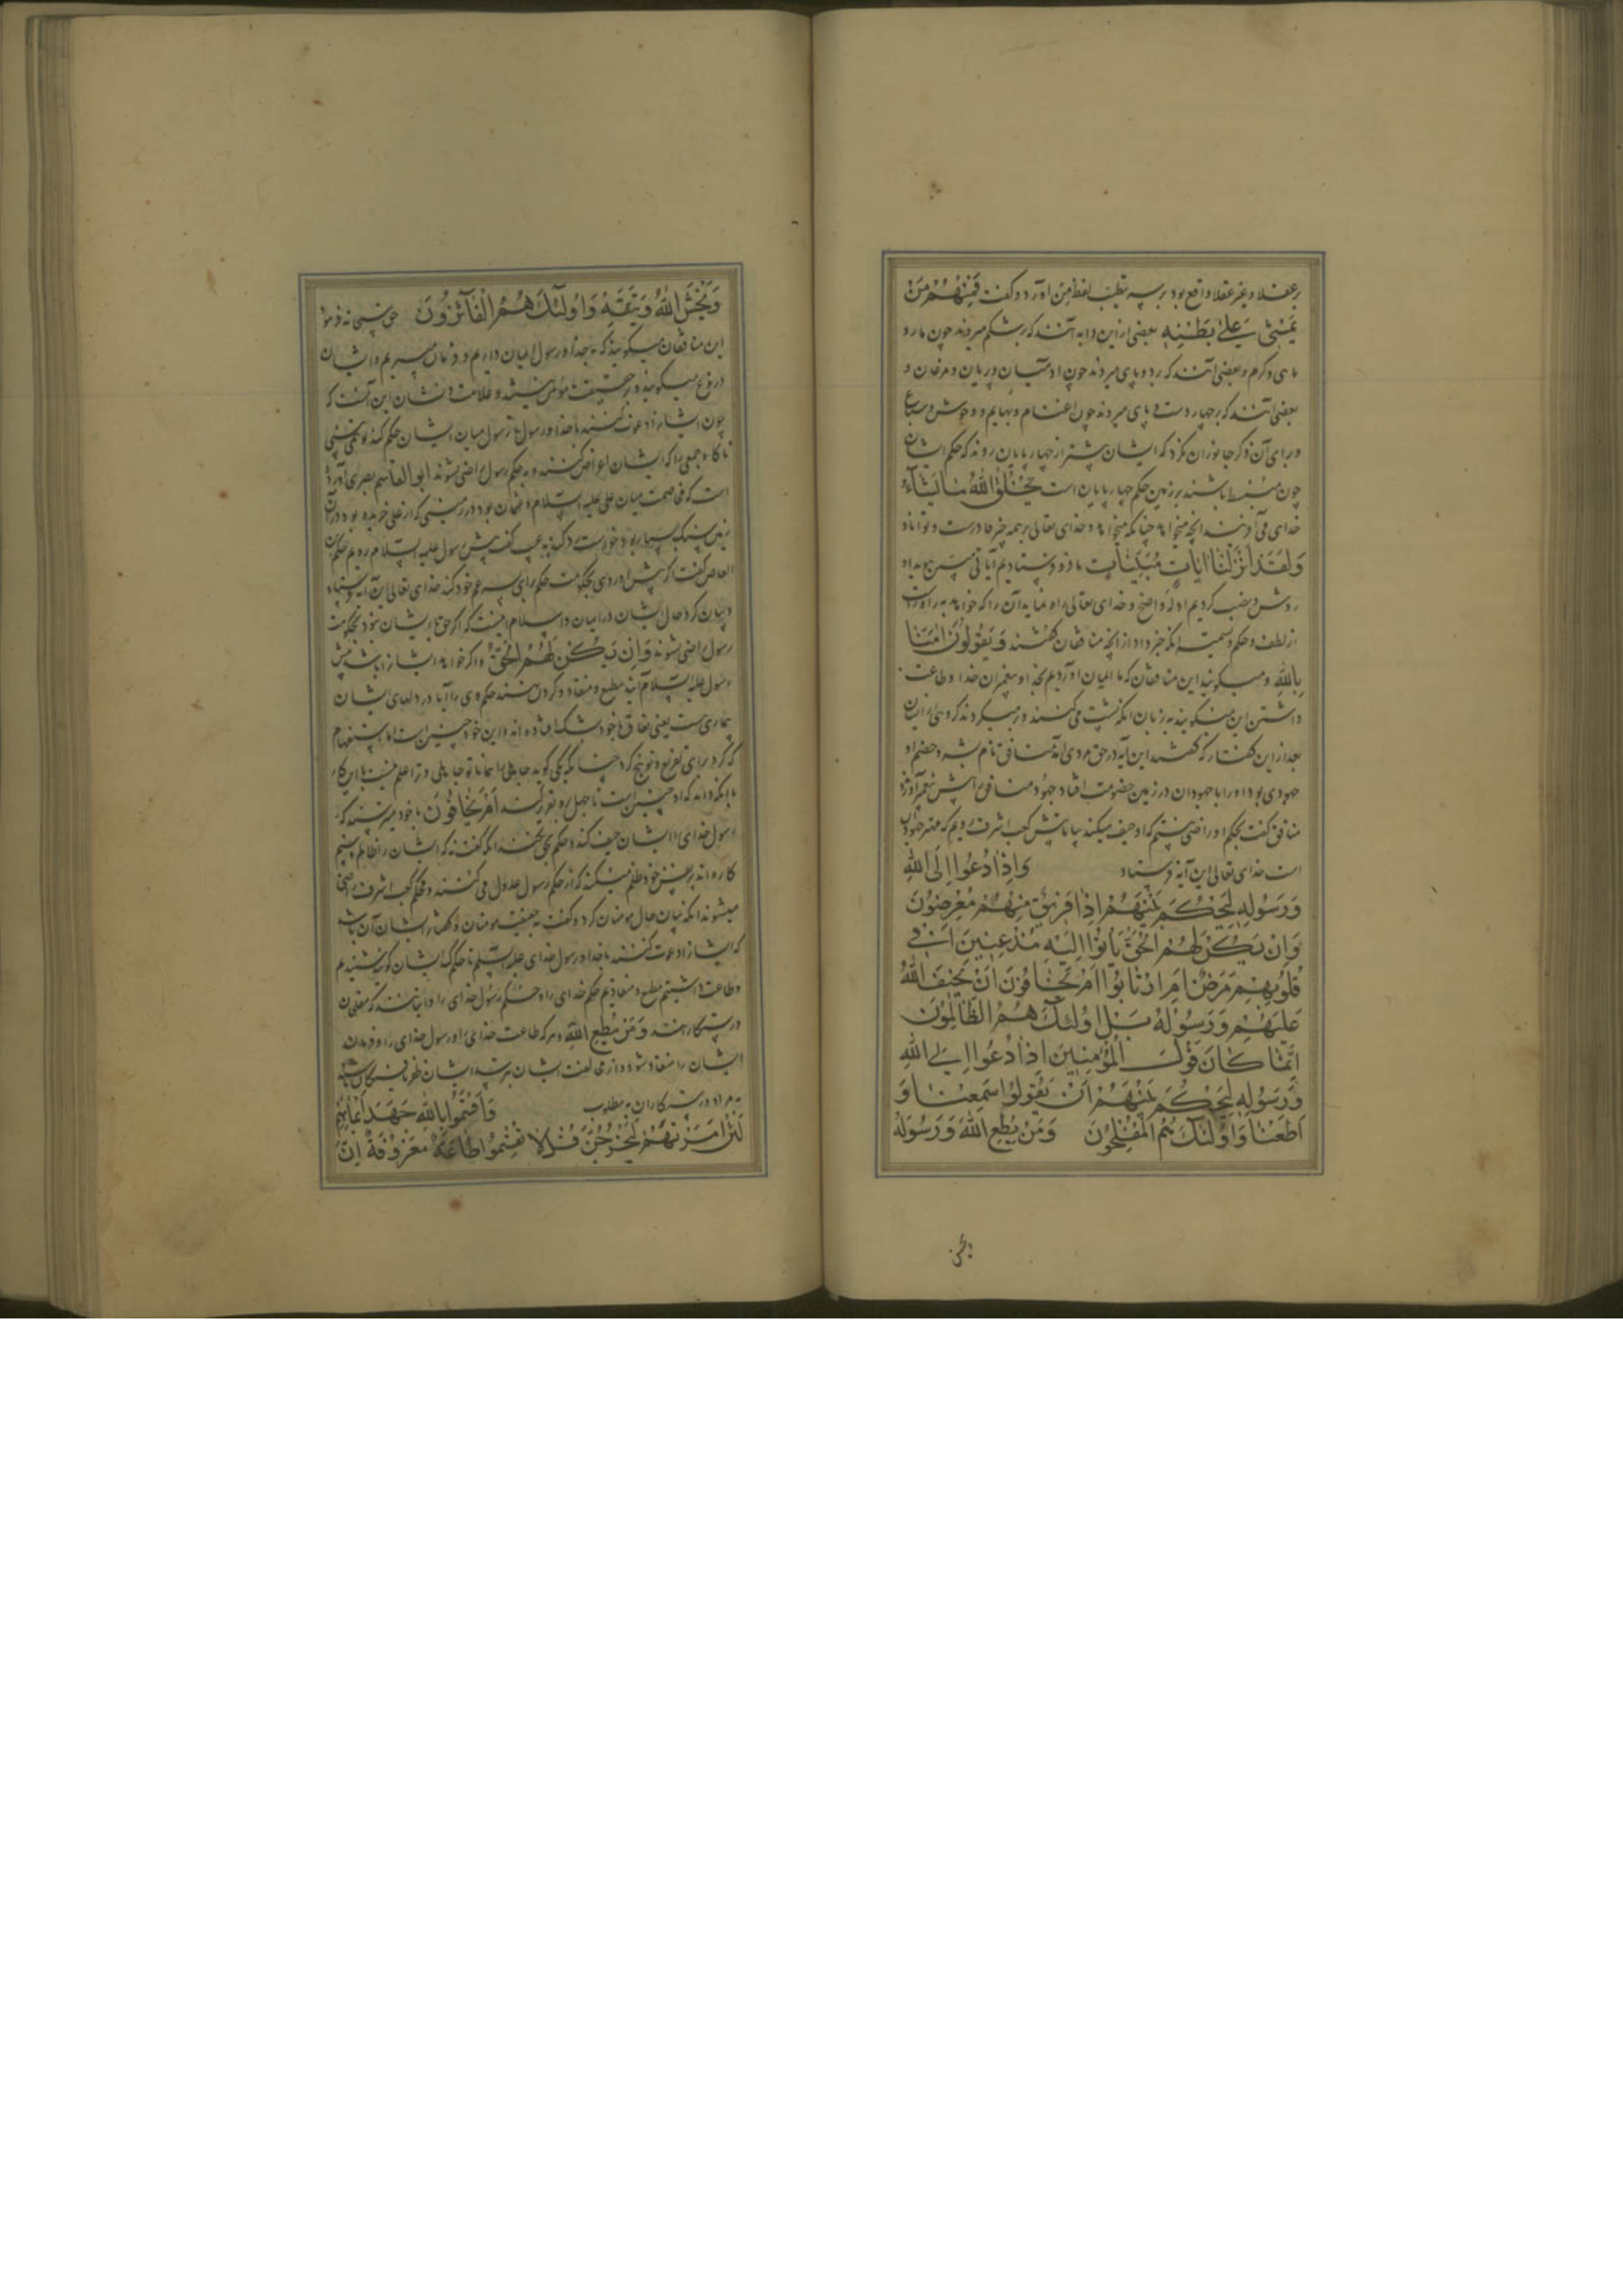 بر عقلا و غیر عقلا واقع بود بر سبیل تغلیب لفظ من آورد و گفت فَمِنْهُمْ مَنْ
یَمْشِی عَلیٰ بَطْنِهِ بعضی از این دابه آنند که بر شکم میروند چون مار و
ماهی و کرم و بعضی آنند که بر دو پای میروند چون آدمیان و پریان و مرغان و
بعضی آنند که بر چهار دست و پای میروند چون اغنام و بهایم و وحوش و سباع
و برای آن ذکر جانوران نکرد که ایشان بیشتر از چهار پایان روند که حکم ایشان
چون منبسط باشند بر زمین حکم چهار پایان است یَخْلُقُ اللهُ مَا یَشَآءُ
خدای می آفریند آنچه میخواهد چنانکه میخواهد و خدای تعالی بر همه چیز قادرست و توانا و
وَلَقَدْ اَنْزَلْنَا ایَاتٍ مُبَیِّنَاتٍ ما فرو فرستادیم آیاتی مبین هویدا و
روشن و نصب کردیم ادله واضح و خدای تعالی راه نماید آن را که خواهد به راه راست
از لطف و حکم و تسمیت آنکه خبر داد از آنچه منافقان گفتند وَیَقُولُونَ امَنَّا
بِاللهِ و میگویند این منافقان که ما ایمان آوردیم بخدا و پیغمبران خدا و طاعت
داشتن این میگویند به زبان آنکه پشت می کنند و برمیگردند گروهی از ایشان
بعد از این گفتار که گفتند این آیه در حق مردی آمد منافق نام بشر و خصم او
جهودی بود او را با جهودان در زمین خصومت افتاد جهود منافق را پیش پیغمبر آورد
منافق گفت بحکم او راضی نیستم که او حیف میکند بیا تا پیش کعب اشرف رویم که مهتر جهودان
است خدای تعالی این آیه فرستاد وَاِذَا دُعُوا اِلَی اللهِ
وَرَسُولِهِ لِیَحْکُمَ بَیْنَهُمْ اِذَا فَرِیقٌ مِنْهُمْ مُعْرِضُونَ
وَاِنْ یَکُنْ لَهُمُ الْحَقُّ یَأْتُوا اِلَیْهِ مُذْعِنِینَ اَفِی
قُلُوبِهِمْ مَرَضٌ اَمِ ارْتَابُوا اَمْ یَخَافُونَ اَنْ یَحِیفَ اللهُ
عَلَیْهِمْ وَرَسُولُهُ بَلْ اُولٰئِکَ هُمُ الظَّالِمُونَ
اِنَّمَا کَانَ قَوْلَ الْمُؤْمِنِینَ اِذَا دُعُوا اِلَی اللهِ
وَرَسُولِهِ لِیَحْکُمَ بَیْنَهُمْ اَنْ یَقُولُوا سَمِعْنَا وَ
اَطَعْنَا وَاُولٰئِکَ هُمُ الْمُفْلِحُونَ وَمَنْ یُطِعِ اللهَ وَرَسُولَهُ
وَیَخْشَ اللهَ وَیَتَّقْهِ وَاُولٰئِکَ هُمُ الْفَآئِزُونَ حق سبحانه فرمود
این منافقان میگویند که به خدا و رسول ایمان داریم و فرمان میبریم و ایشان
دروغ میگویند و بر حقیقت مؤمن نیستند و علامت و نشان این آنست که
چون ایشانرا دعوت کنند با خدا و رسول تا رسول میان ایشان حکم کند تو می بینی
ناگاه جمعی را که ایشان اعراض کنند و به حکم رسول راضی نشوند ابو القاسم بصری آورده
است که مخاصمت میان علی علیه السلام و عثمان بود در زمینی که از علی خریده بود در آن
زمین سنگ بسیار بود خواست رد کند به عیب گفت پیش رسول علیه السلام رویم حکم بن
العاص گفت اگر پیش او روی بحکومت حکم برای پسر عم خود کند خدای تعالی این آیه فرستاد
و بیان کرد حال ایشان در ایمان و اسلام اینست که اگر حق با ایشان نبود بحکومت
رسول راضی نشوند وَاِنْ یَکُنْ لَهُمُ الْحَقُّ و اگر خواهد ایشانرا باشد پیش
رسول علیه السلام آیند مطیع و منقاد و گردن نهند حکم وی را آیا در دلهای ایشان
بیماری ست یعنی نفاق یا خود بشک افتاده اند و این خود چنین است اما استفهام
که کرد برای تقریع و توبیخ کرد چنانکه یکی گوید جاهلی را همانا تو جاهلی و ترا علم نیست باین کار
با آنکه داند که او چنین است تا جهل بر او تقریر کند اَمْ یَخَافُونَ یا خود میترسند که
رسول خدای بر ایشان حیف کند و حکم بحق نکند آنکه گفت نه که ایشان را ظالم و ستم
کاره اند بر نفس خود ظلم میکنند که از حکم رسول عدول می کنند و بحکم کعب اشرف راضی
میشوند آنکه بیان حال مومنان کرد و گفت به حقیقت مومنان و گفتار ایشان آن باشد
که ایشانرا دعوت کنند با خدا و رسول خدای علیه السلم تا حکم کند ایشان گویند شنیدیم
و طاعت داشتیم مطیع و منقادیم حکم خدای را و حکم رسول خدای را و اینانند که مفلحان
و رستگارانند وَمَنْ یُطِعِ اللهَ و هر که طاعت خدای برد و رسول خدای را و فرمان
ایشان را منقاد شود و از مخالفت ایشان بترسد ایشان ظفر یافتگان باشند
به مراد و رستگاران به مطلوب وَاَقْسَمُوا بِاللهِ جَهْدَ اَیْمَانِهِمْ
لَئِنْ اَمَرْتَهُمْ لَیَخْرُجُنَّ قُلْ لَا تُقْسِمُوا طَاعَةٌ مَعْرُوفَةٌ اِنَّ